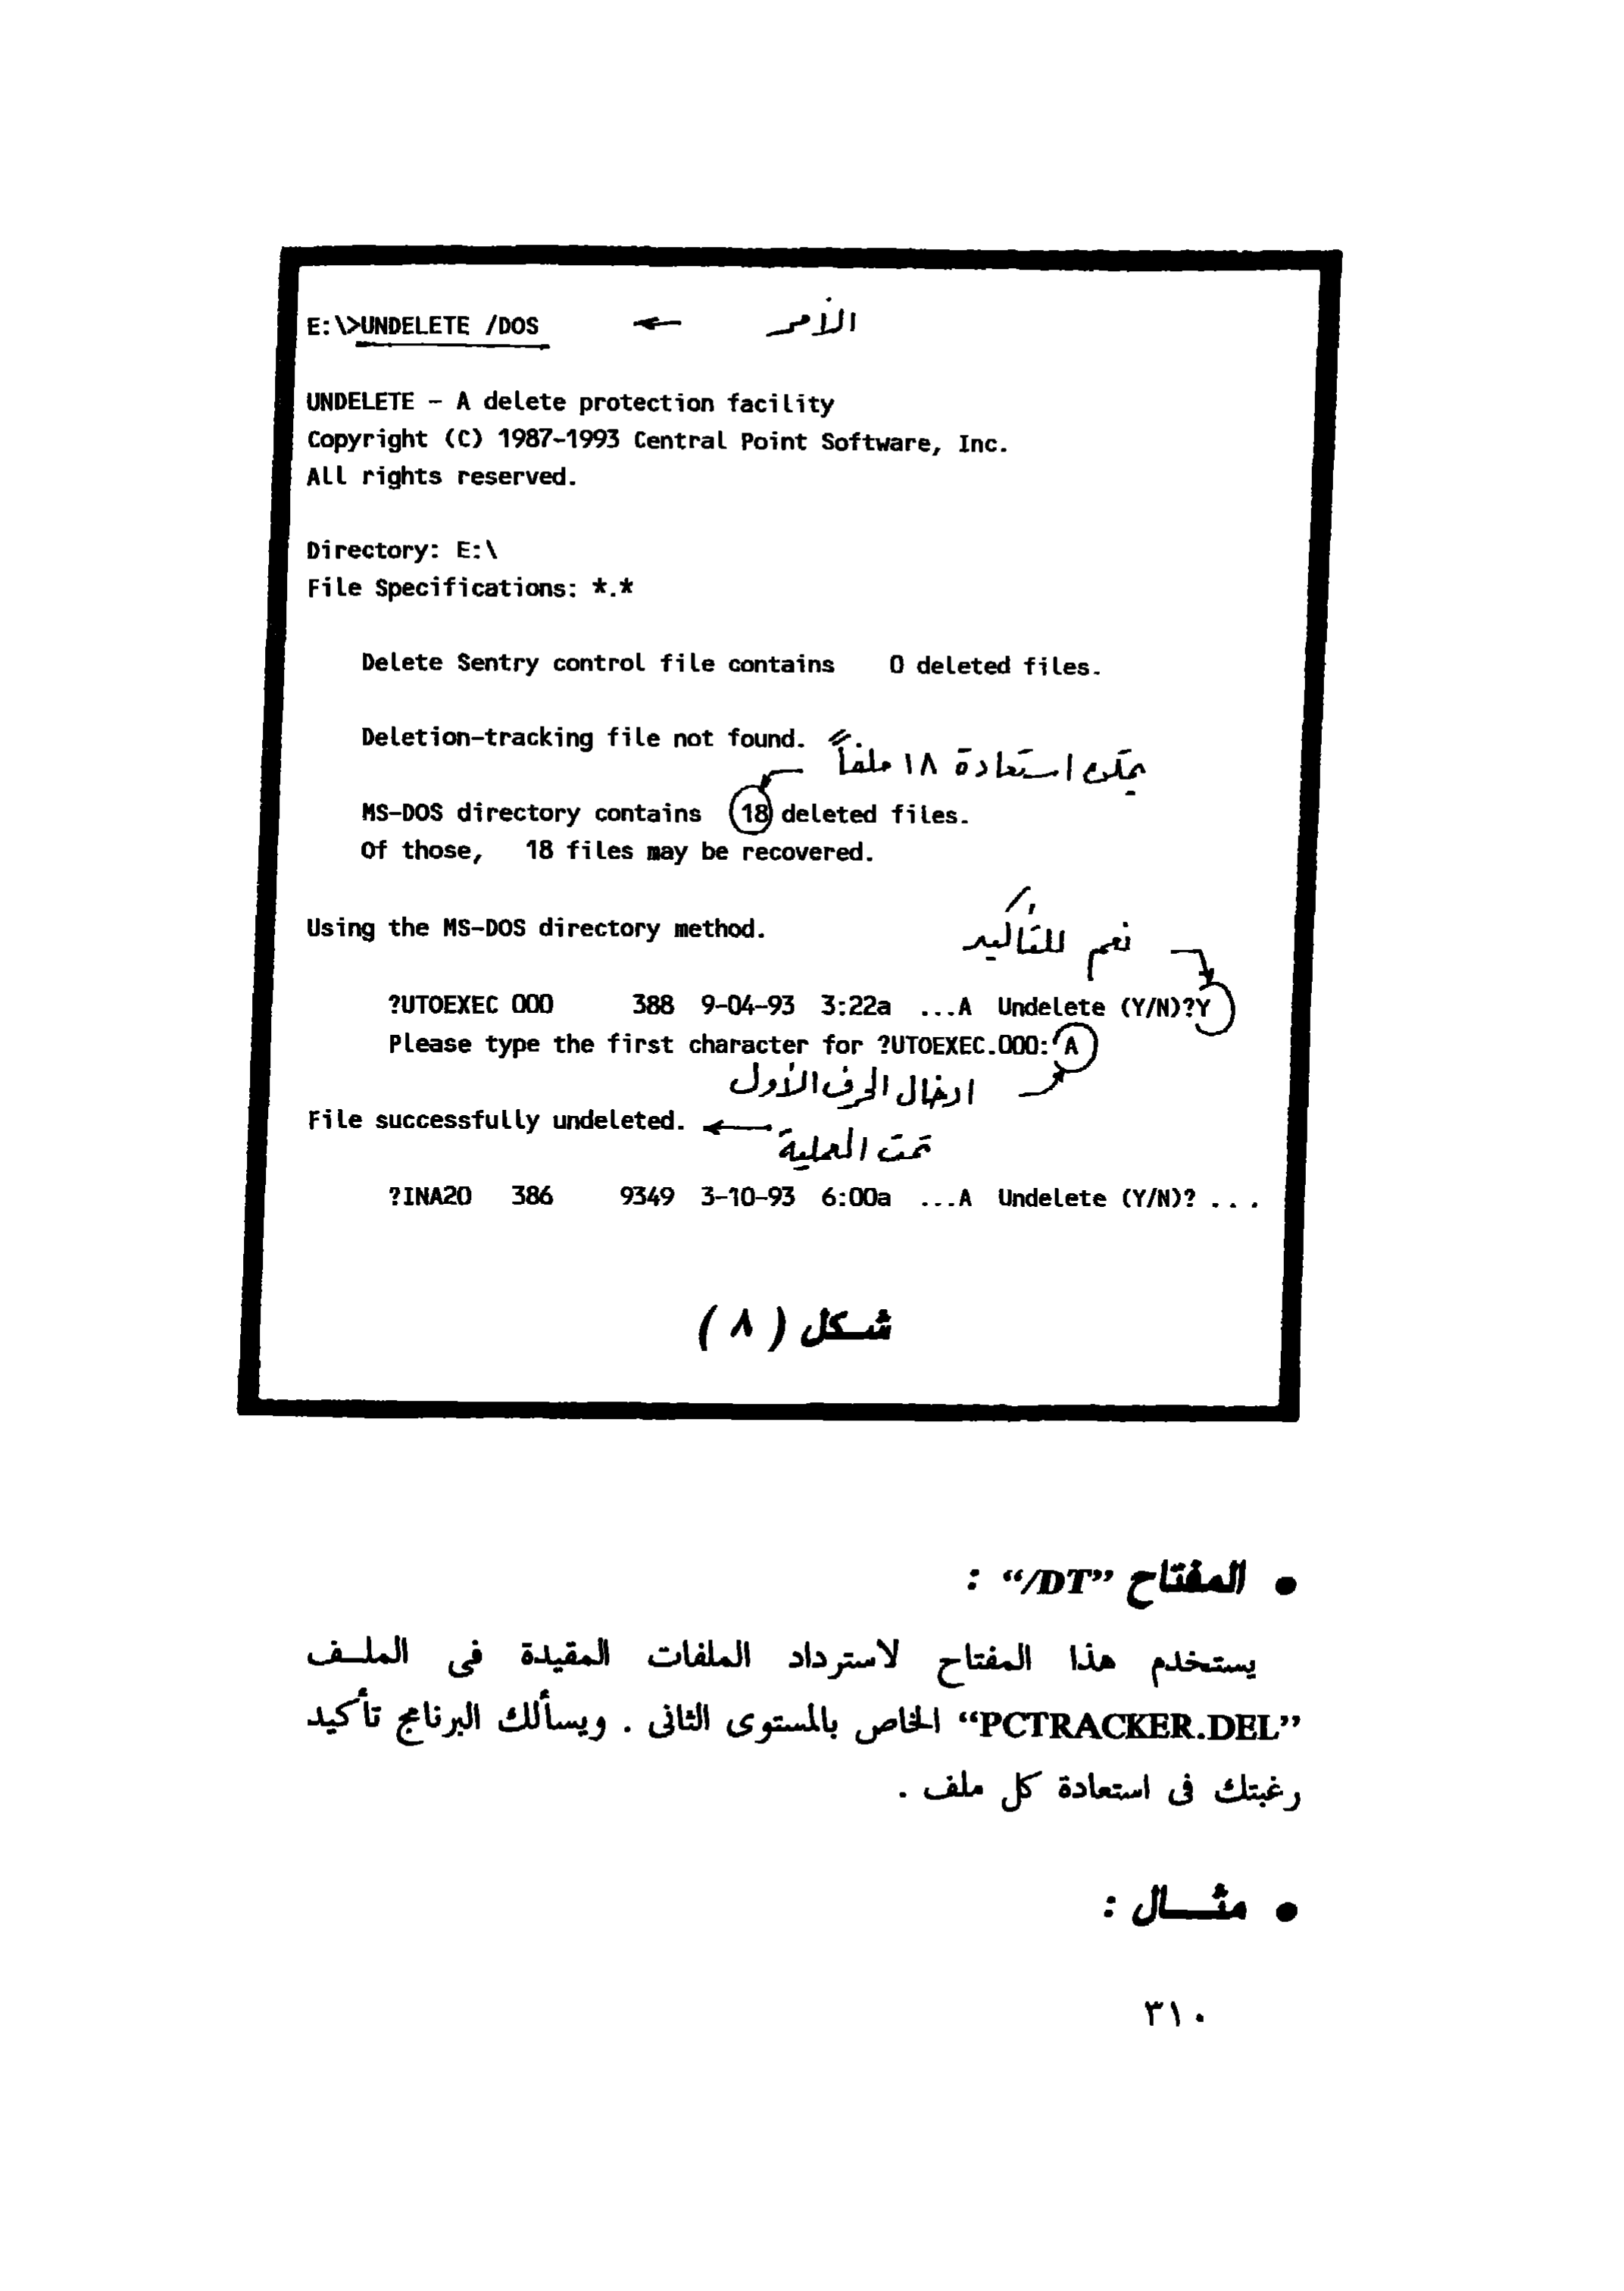 E:\>UNDELETE /DOS ← الأمر
UNDELETE - A delete protection facility
Copyright (C) 1987-1993 Central Point Software, Inc.
All rights reserved.
Directory: E:\
File Specifications: *.*
Delete Sentry control file contains 0 deleted files.
Deletion-tracking file not found.
يمكن استعادة ١٨ ملفاً
MS-DOS directory contains 18 deleted files.
Of those, 18 files may be recovered.
Using the MS-DOS directory method.
نعم للتأكيد
?UTOEXEC 000 388 9-04-93 3:22a ...A Undelete (Y/N)?Y
Please type the first character for ?UTOEXEC.000: A
ادخال الحرف الأول
File successfully undeleted. ←
تمت العملية
?INA20 386 9349 3-10-93 6:00a ...A Undelete (Y/N)? ...
شكل ( ٨ )
• المفتاح “/DT” :
يستخدم هذا المفتاح لاسترداد الملفات المقيدة فى الملف
“PCTRACKER.DEL” الخاص بالمستوى الثانى . ويسألك البرنامج تأكيد
رغبتك فى استعادة كل ملف .
• مثال :
٣١٠